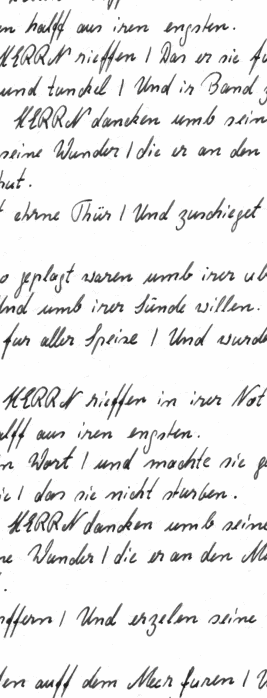 en halff aus iren engsten.
HERRN rieffen / Das er sie
und tunckel / Und ir Band
HERRN dancken umb sein
seine Wunder / die er an den
hat.
ehrne Thür / Und zuschleget
geplagt waren umb irer ub
Und umb irer Sünde willen.
fur aller Speise / Und wurde
HERRN rieffen in irer Not
alff aus iren engsten.
in Wort / und machte sie ge
/ das sie nicht sturben.
HERRN dancken umb seine
ne Wunder / die er an den Me
pffern / Und erzelen seine
den auff dem Meer furen /